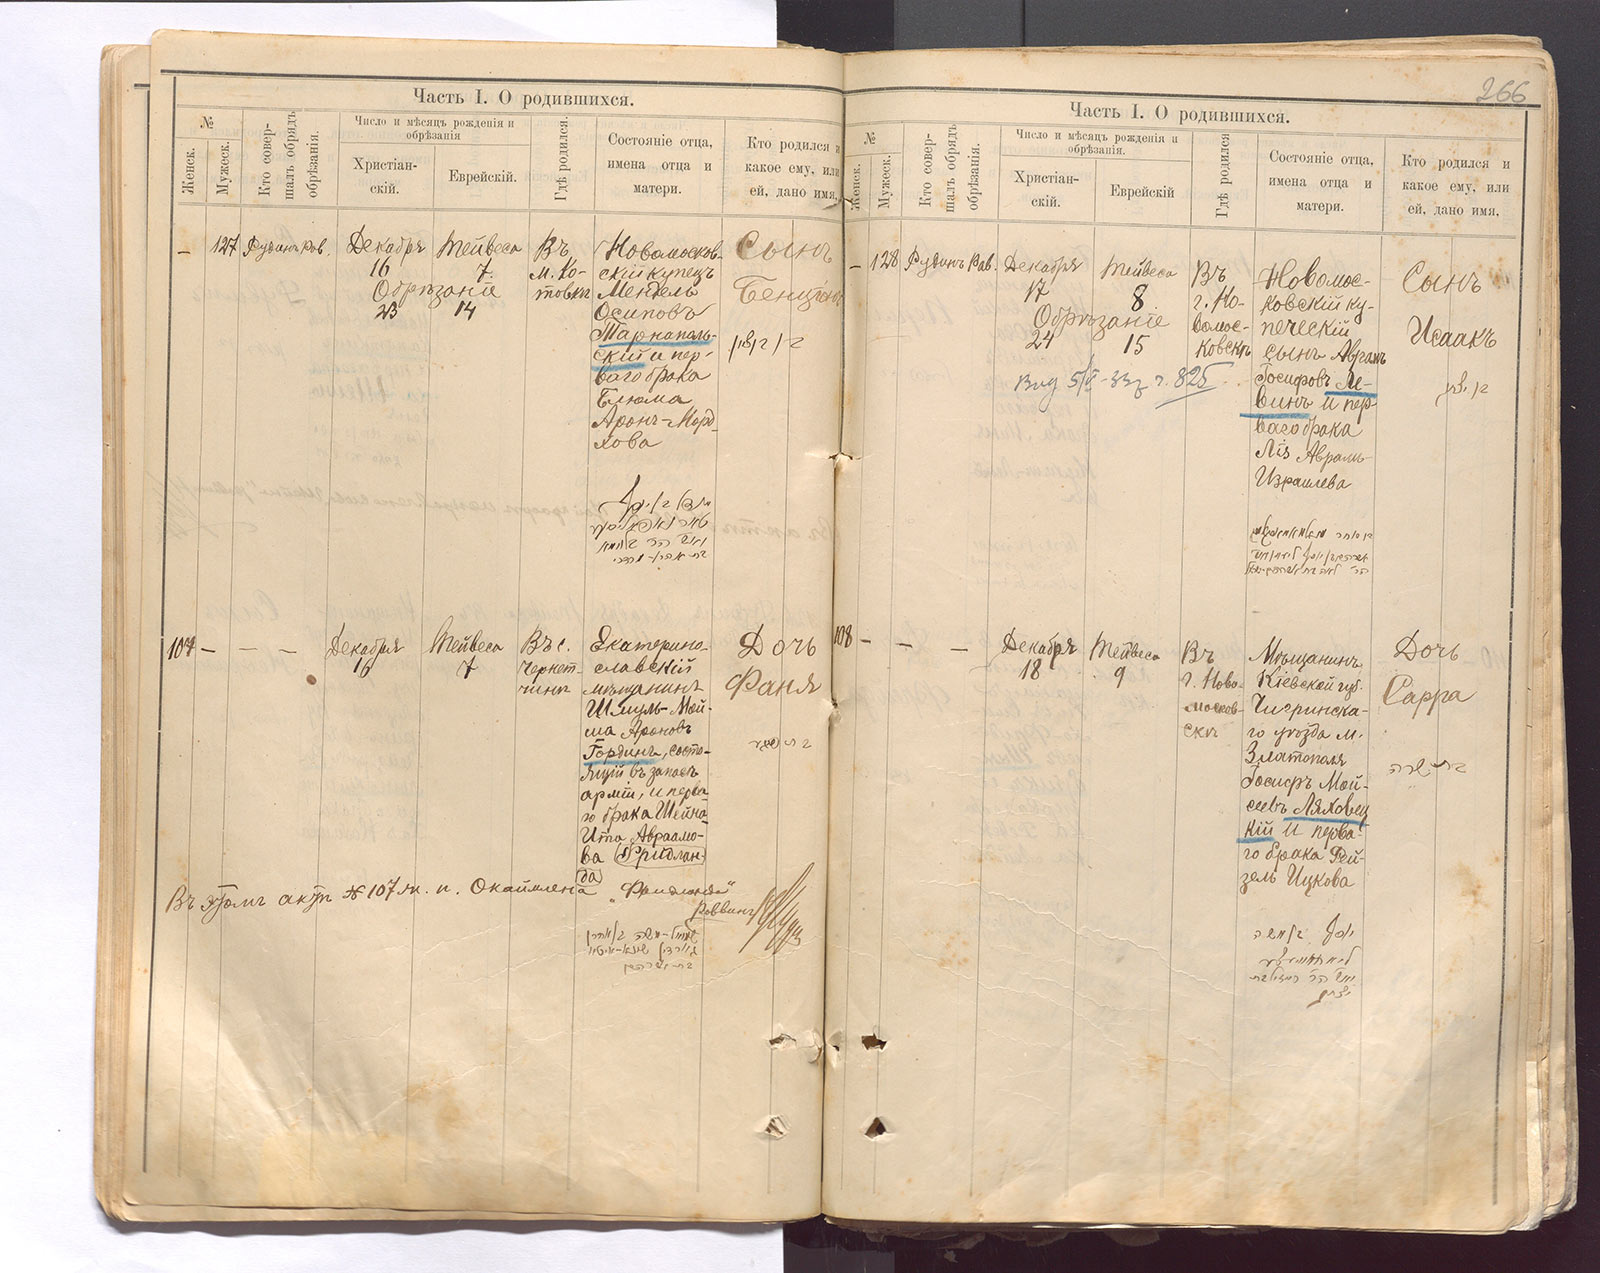 Часть I. О родившихся.
№
Женск.
Мужеск.
Кто совер-
шалъ обрядъ
обрѣзанія.
Число и мѣсяцъ рожденія и
обрѣзанія
Христіан-
скій.
Еврейскій.
Гдѣ родился.
Состояніе отца,
имена отца и
матери.
Кто родился и
какое ему, или
ей, дано имя,
– 127 Рудинъ Рав.
Декабря
16
Обрѣзаніе
23
Тейвеса
7
14
Въ
м. Ко-
товкѣ
Новомосков-
скій купецъ
Мендель
Осиповъ
Тарнаполь-
скій и пер-
ваго брака
Блюма
Аронъ-Морд-
хова
Сынъ
Бенціонъ
בן בן ציון
107 – – –
Декабря
16
Тейвеса
7
Въ с.
Чернет-
чинѣ
Екатерино-
славскій
мѣщанинъ
Шмуль-Мой-
ша Ароновъ
Гординъ, состо-
ящій въ запасѣ
арміи, и перва-
го брака Шейна-
Ита Авраамо-
ва Фридлан-
да
Дочь
Фаня
Въ этомъ актѣ № 107 жн. п. Окаймлена „Фридланда"
Раввинъ
שמואל-משה בן אהרן
גארדין שיינא-איטא
בת אברהם
266
Часть I. О родившихся.
№
Женск.
Мужеск.
Кто совер-
шалъ обрядъ
обрѣзанія.
Число и мѣсяцъ рожденія и
обрѣзанія.
Христіан-
скій.
Еврейскій
Гдѣ родился
Состояніе отца,
имена отца и
матери.
Кто родился и
какое ему, или
ей, дано имя,
– 128 Рудинъ Рав.
Декабря
17
Обрѣзаніе
24
Тейвеса
8
15
Въ
г. Но-
вомос-
ковскѣ
Новомос-
ковскій ку-
печескій
сынъ Аврамъ
Іосифовъ Ле-
винъ и пер-
ваго брака
Лія Аврамъ-
Израилева
Сынъ
Исаакъ
בן יצחק
825
108 – – –
Декабря
18
Тейвеса
9
Въ
г. Ново-
москов-
скѣ
Мѣщанинъ
Кіевской губ.
Чигринска-
го уѣзда м.
Златополя
Іосифъ Мой-
сеевъ Ляховец-
кій и перва-
го брака Рей-
зель Ицкова
Дочь
Сарра
בת שרה
יוסף בן משה
יצחק